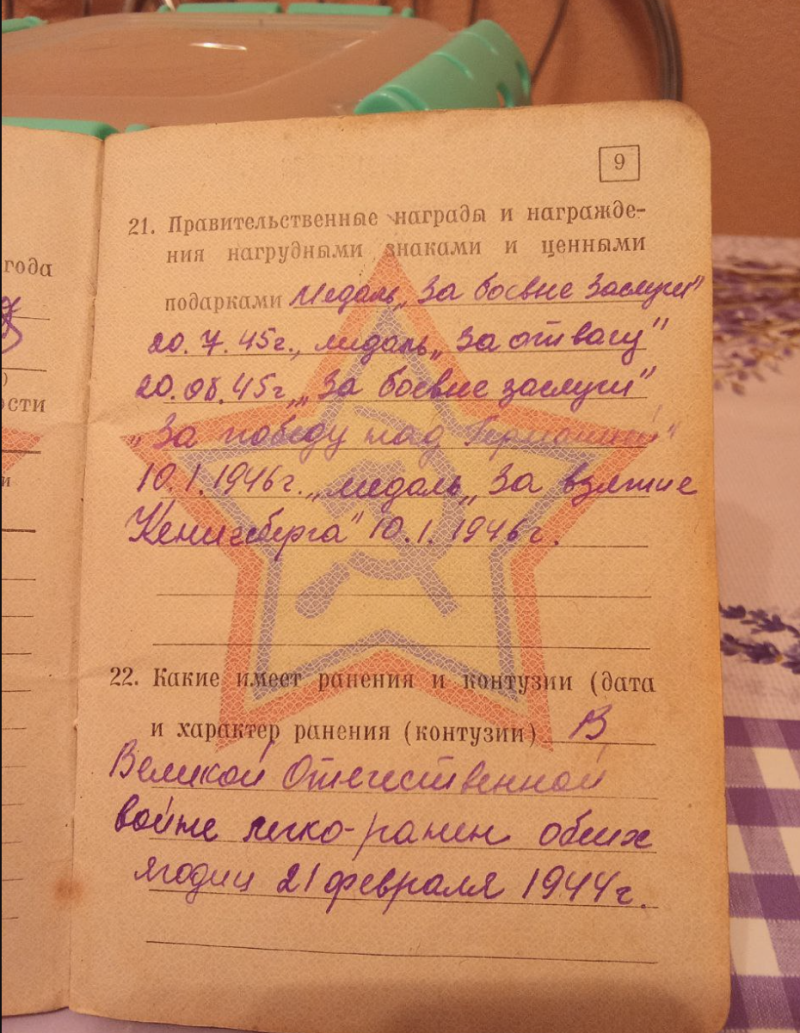 9
21. Правительственные награды и награжде-
ния нагрудными знаками и ценными
года
подарками Медаль „За боевые заслуги"
20.7.45г., медаль „За отвагу"
20.08.45г. „За боевые заслуги"
)
ости
„За победу над Германией"
и
10.1.1946г. „медаль „За взятие
Кенигсберга" 10.1.1946г.
22. Какие имеет ранения и контузии (дата
и характер ранения (контузии) В
Великой Отечественной
войне легко-ранен обеих
ягодиц 21 февраля 1944г.